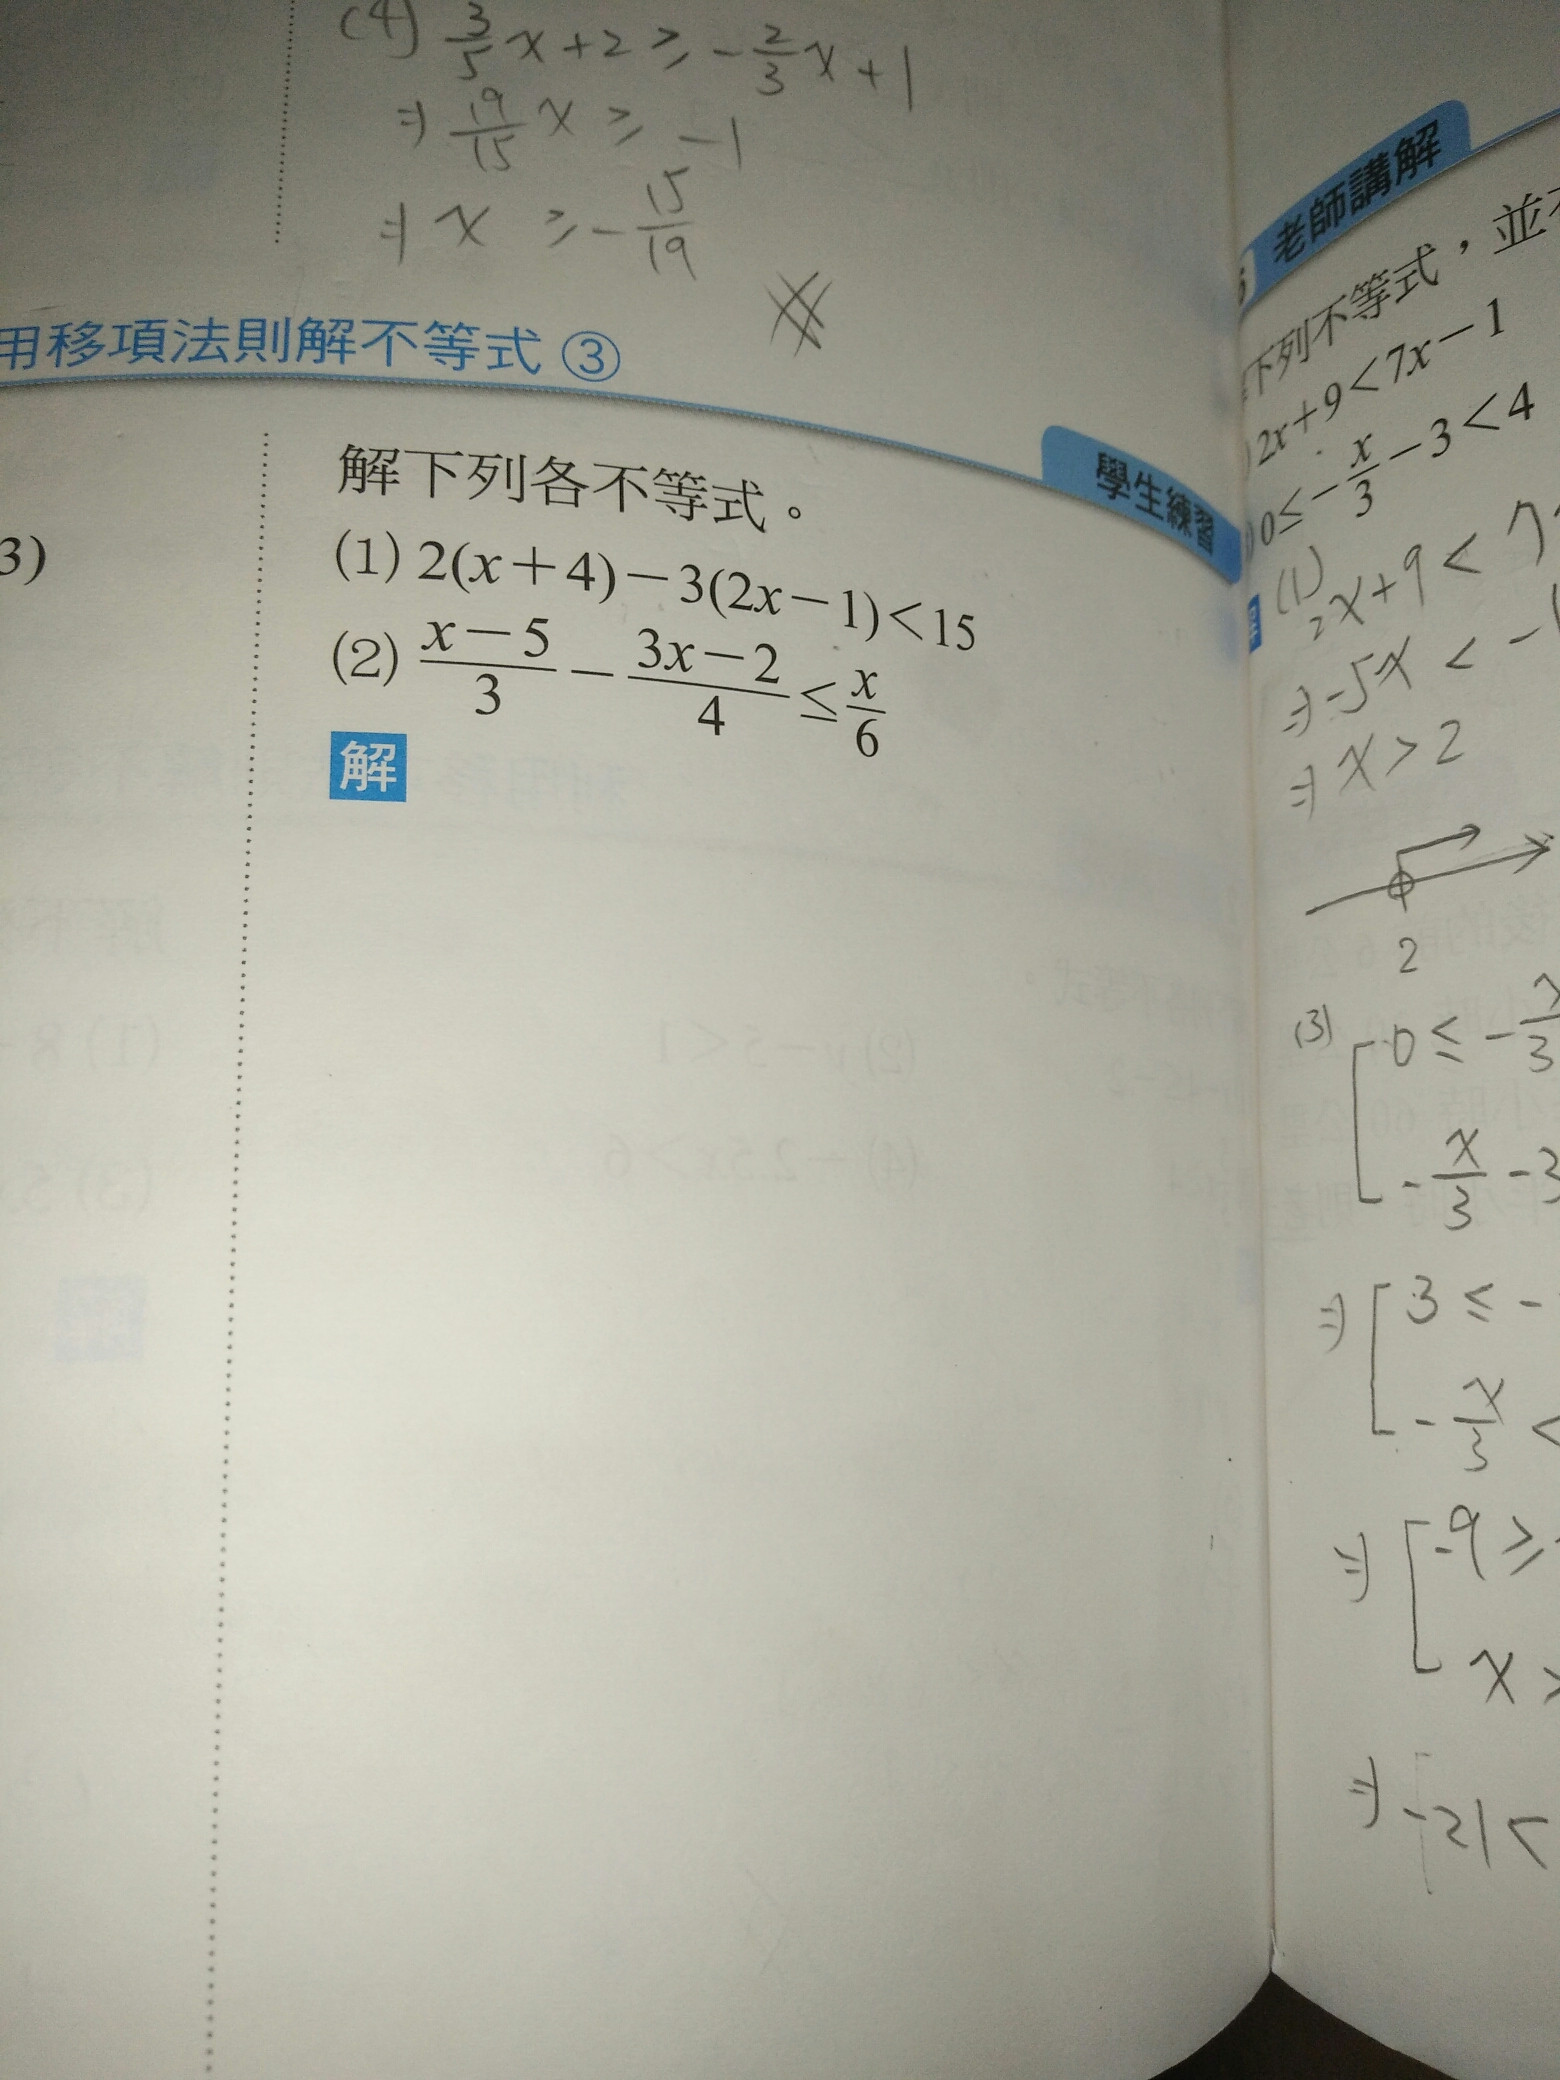 (4) 3/5 x + 2 ≥ - 2/3 x + 1
⇒ 19/15 x ≥ -1
⇒ x ≥ - 15/19
用移項法則解不等式 ③
3)
學生練習
解下列各不等式。
(1) 2(x+4)-3(2x-1)<15
(2) x-5/3 - 3x-2/4 ≤ x/6
解
老師講解
下列不等式，並
2x+9<7x-1
0≤-x/3-3<4
(1) 2x+9 < 7
⇒ -5x < -1
⇒ x > 2
2
(3) 0 ≤ - x/3
- x/3 - 3
⇒ 3 ≤ -
- x/3 <
⇒ -9 ≥
x >
⇒ -21 <